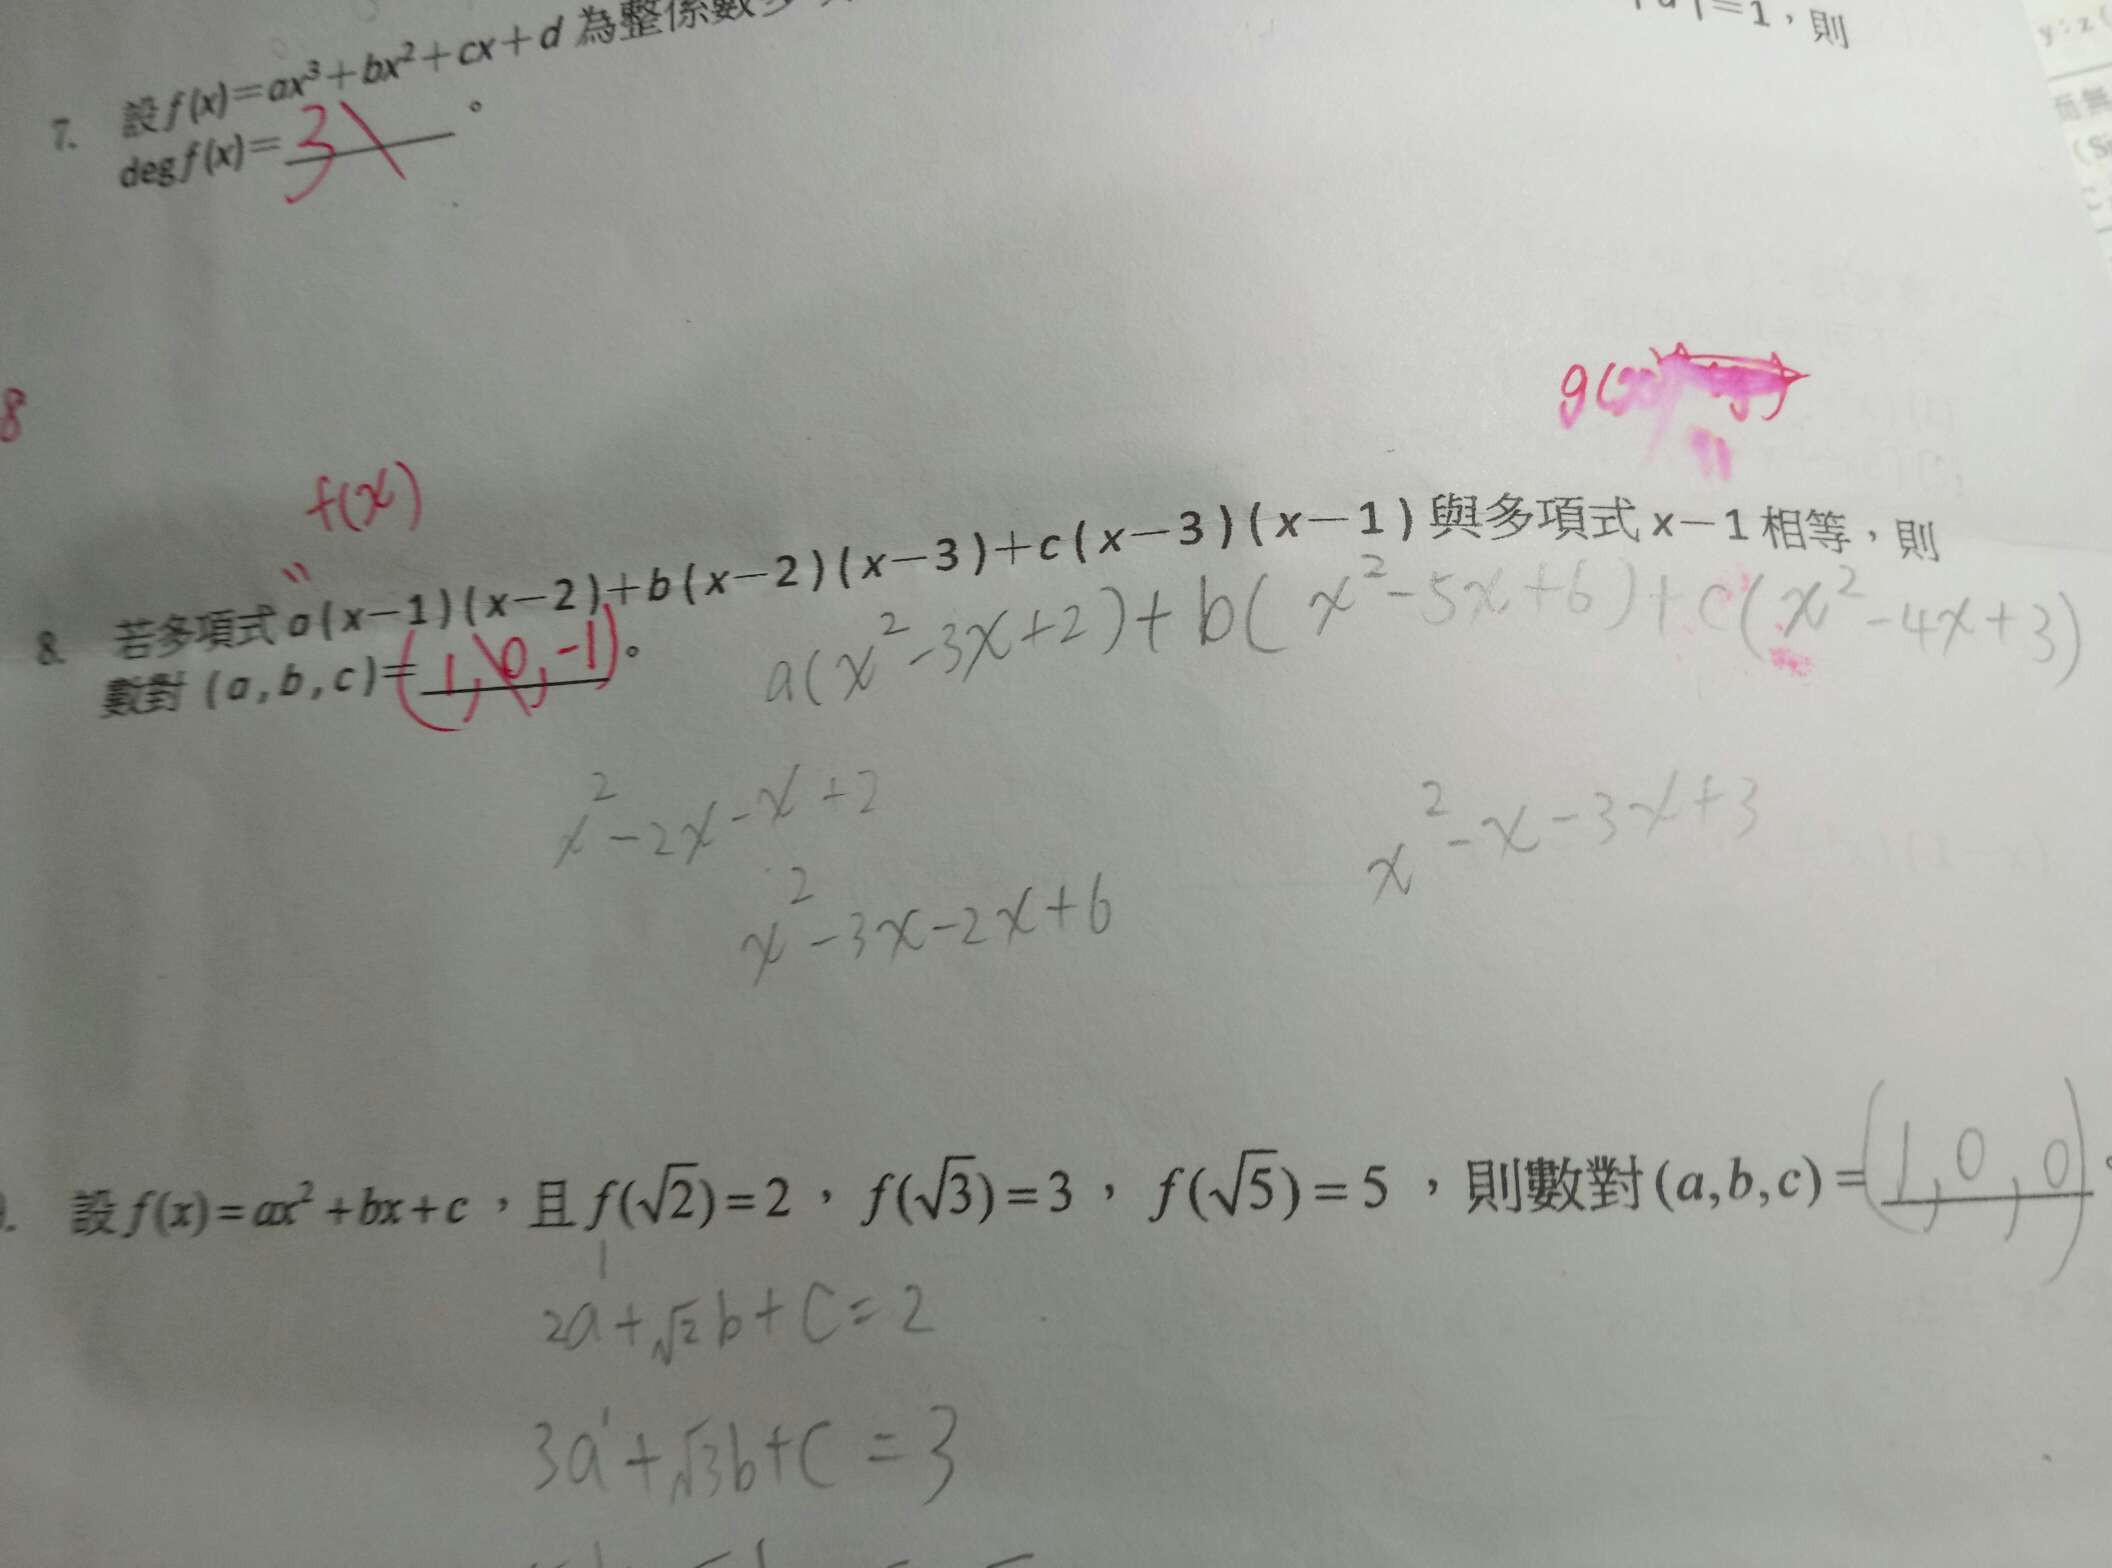 7. 設f(x)=ax³+bx²+cx+d 為整係數多
=1，則
degf(x)=3。
8
g(x)
f(x)
8. 若多項式a(x−1)(x−2)+b(x−2)(x−3)+c(x−3)(x−1)與多項式x−1相等，則
數對(a,b,c)=(1,0,-1)。
a(x²-3x+2)+b(x²-5x+6)+c(x²-4x+3)
x²-2x-x+2
x²-x-3x+3
x²-3x-2x+6
設f(x)=ax²+bx+c，且f(√2)=2，f(√3)=3，f(√5)=5，則數對(a,b,c)=(1,0,0)。
2a+√2b+c=2
3a+√3b+c=3